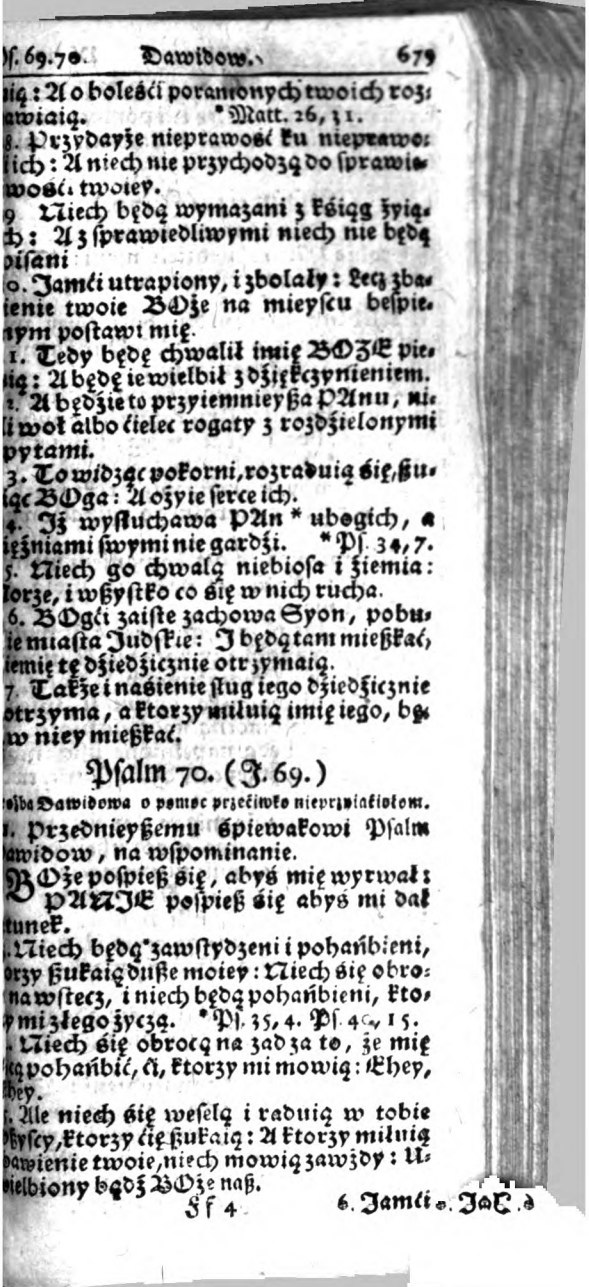 Ps. 69.70. Dawidow. 679
nią: A o boleści poranionych twoich roz-
awiaią. * Matt. 26, 31.
8. Przydayże nieprawość ku nieprawo-
iich: A niech nie przychodzą do sprawie-
wości twoiey.
9 Niech będą wymazani z ksiąg żyią-
ch: A z sprawiedliwymi niech nie będą
pisani
0. Jamći utrapiony, i zbolały: Lecz zba-
ienie twoie BOże na mieyscu bespie-
nym postawi mię.
1. Tedy będę chwalił imię BOŻE pie-
nią: A będę ie wielbił z dziękczynieniem.
2. A będzie to przyiemnieyßa PAnu, ni-
li woł albo ćielec rogaty z rozdzielonymi
pytami.
3. To widząc pokorni, rozraduią się, ßu-
iąc BOga: A ożyie serce ich.
4. Iż wysłuchawa PAn * ubogich, a
ięźniami swymi nie gardzi. * Ps. 34, 7.
5. Niech go chwalą niebiosa i ziemia:
orze, i wßystko co się w nich rucha.
6. BOgći zaiste zachowa Syon, pobu-
ie miasta Judskie: I będą tam mießkać,
iemię tę dziedzicznie otrzymaią.
7. Także i nasienie sług iego dziedzicznie
otrzyma, a ktorzy miłuią imię iego, bę-
w niey mießkać.
Psalm 70. (J. 69.)
rośba Dawidowa o pomoc przećiwko nieprzyiaćiołom.
1. Przednieyßemu śpiewakowi Psalm
awidow, na wspominanie.
BOże pospieß się, abyś mię wyrwał:
PANIE pospieß się abyś mi dał
tunek.
Niech będą * zawstydzeni i pohańbieni,
orzy ßukaią duße moiey: Niech się obro-
na wstecz, i niech będą pohańbieni, kto-
y mi złego życzą. * Ps. 35, 4. Ps. 40, 15.
. Niech się obrocą na zad za to, że mię
cą pohańbić, ći, ktorzy mi mowią: Ehey,
hey.
5. Ale niech się weselą i raduią w tobie
ßyscy, ktorzy ćię ßukaią: A ktorzy miłuią
bawienie twoie, niech mowią zawżdy: U-
ielbiony bądź BOże naß.
Ff 4 6. Jamći